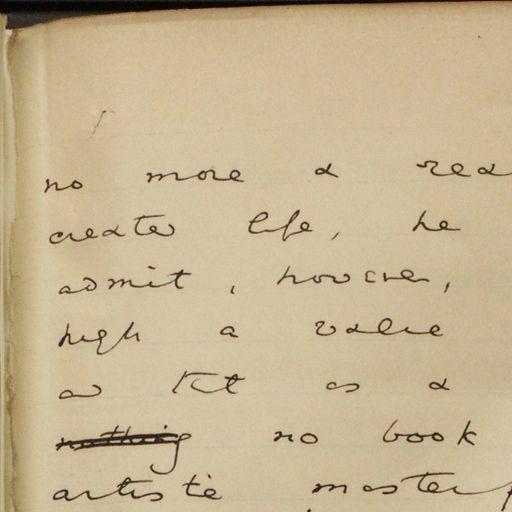 no more a rea
creates life, he
admit, however,
high a value
as a
nothing no book
artistic masterp